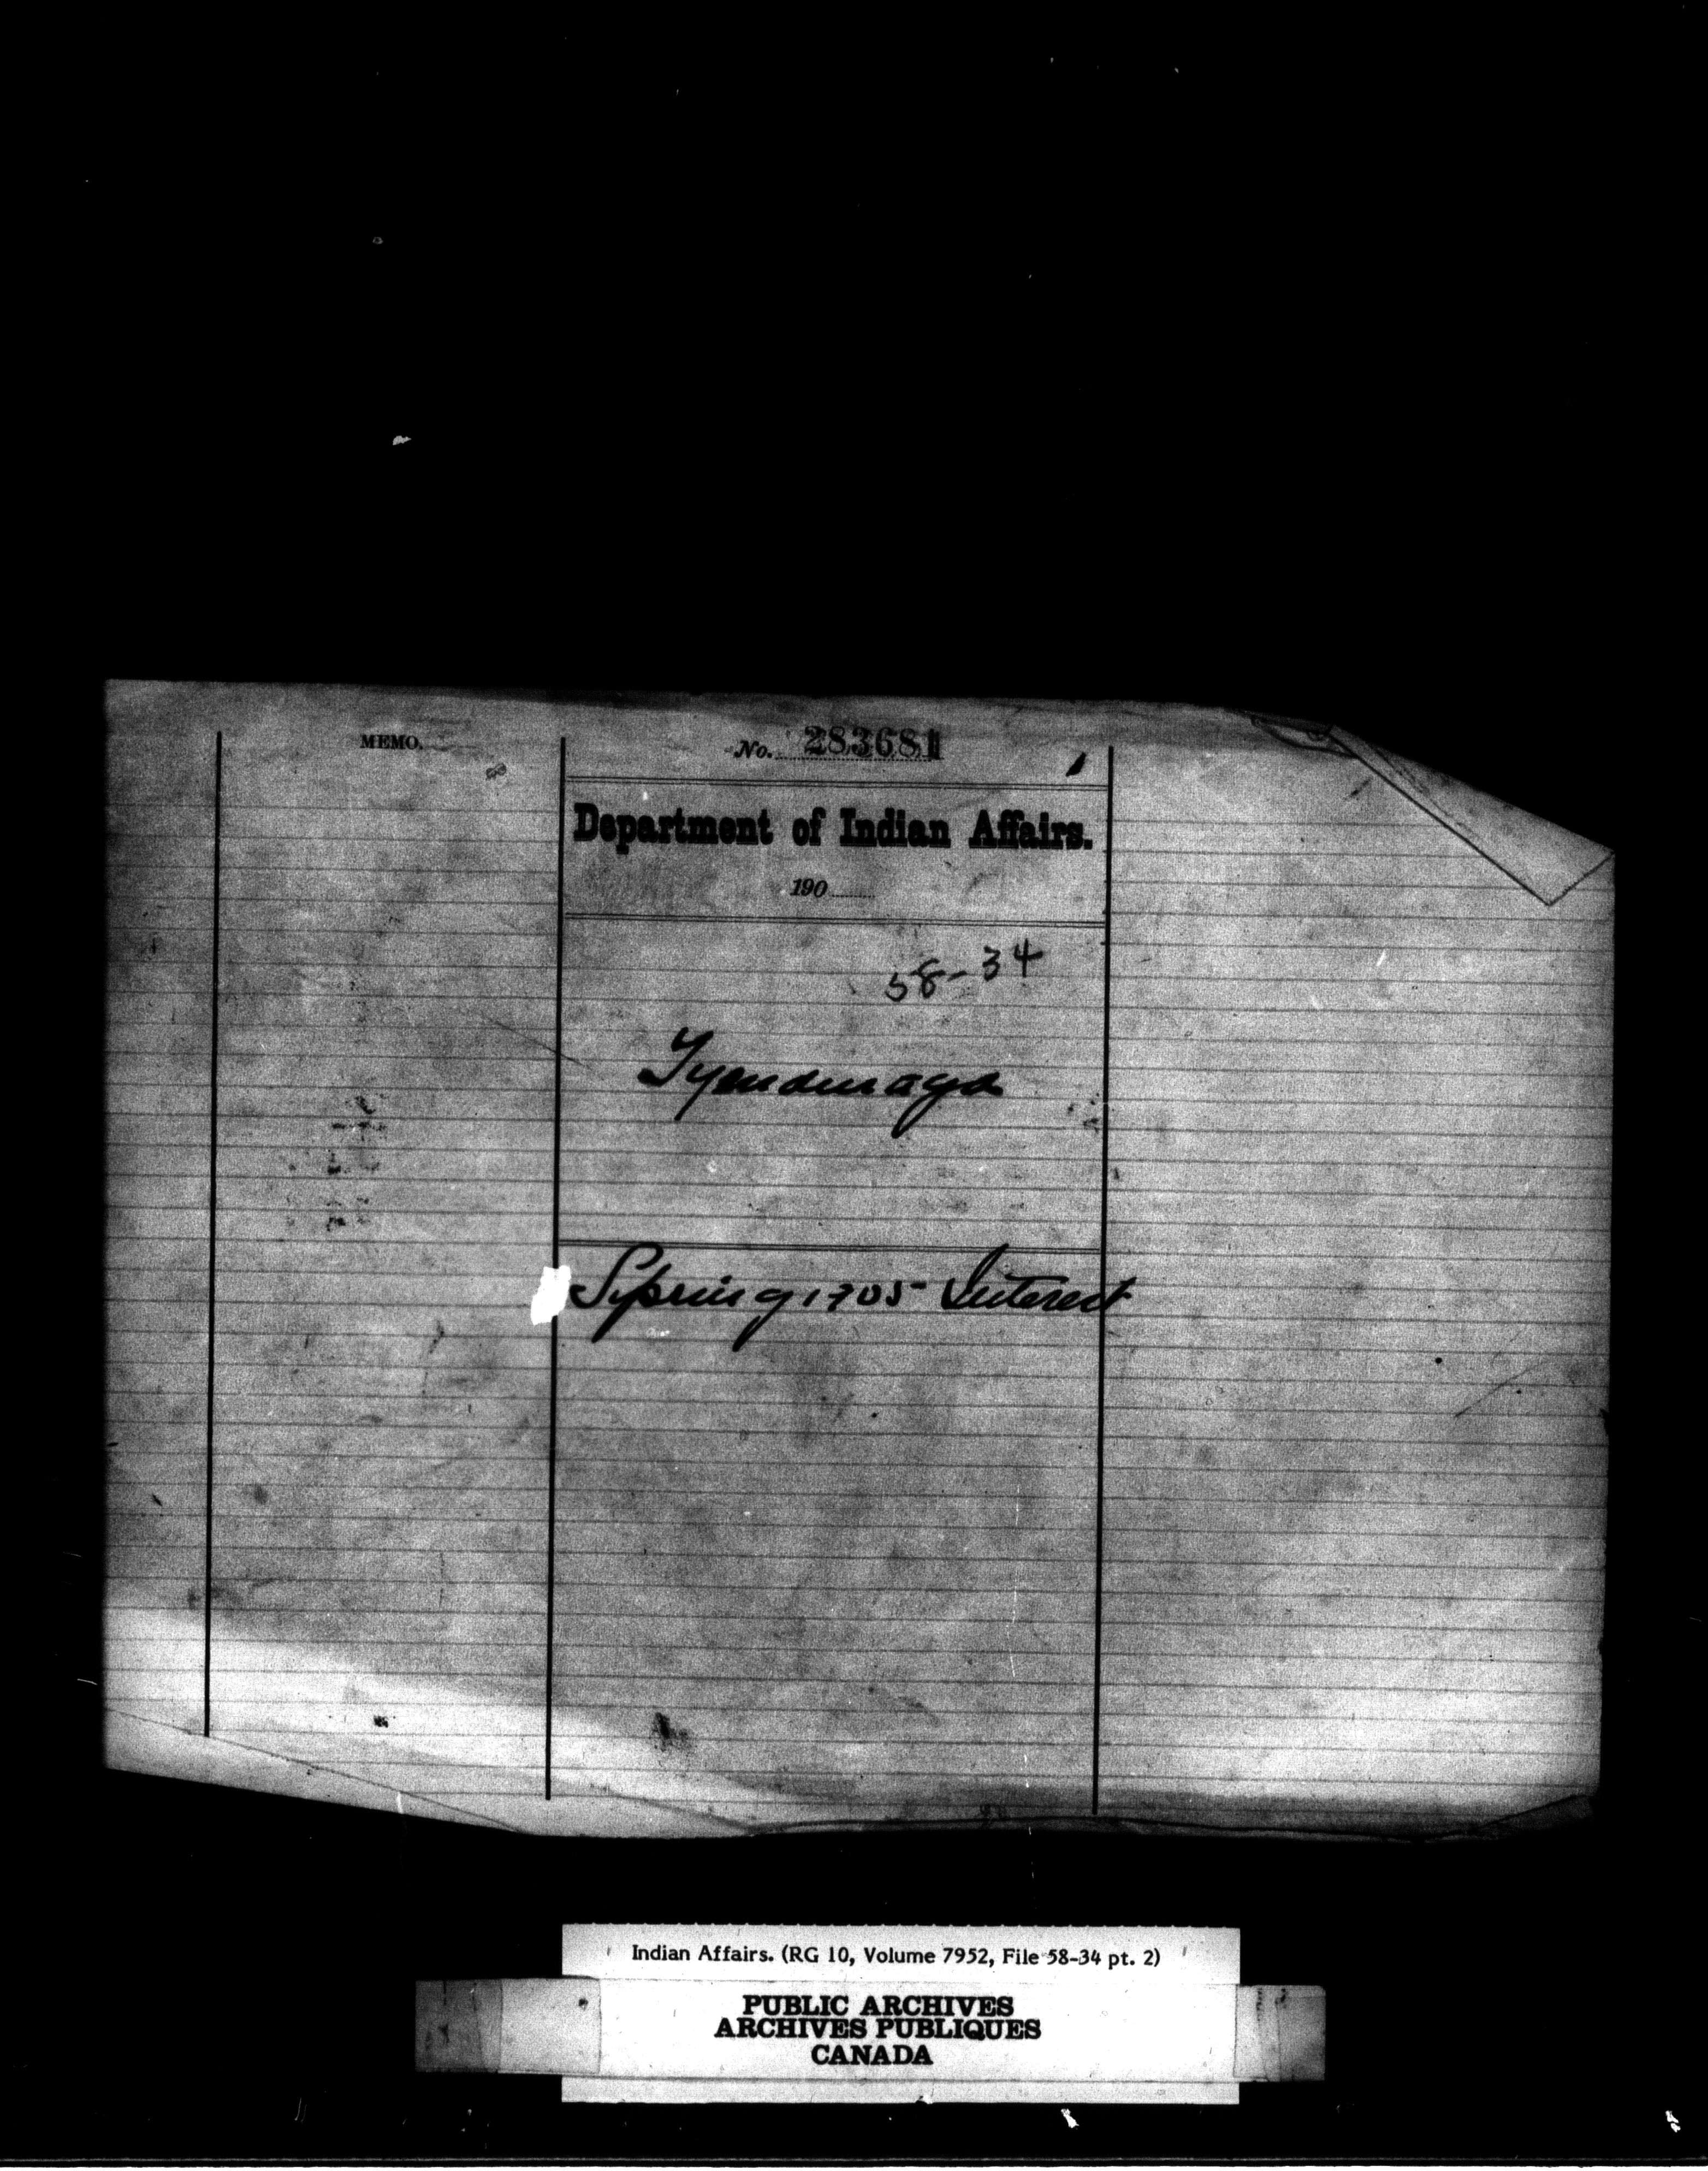 MEMO.
No. 283681
Department of Indian Affairs.
190
58-34
Tyendinaga
Spring 1905 Interest
Indian Affairs. (RG 10, Volume 7952, File 58-34 pt. 2)
PUBLIC ARCHIVES
ARCHIVES PUBLIQUES
CANADA